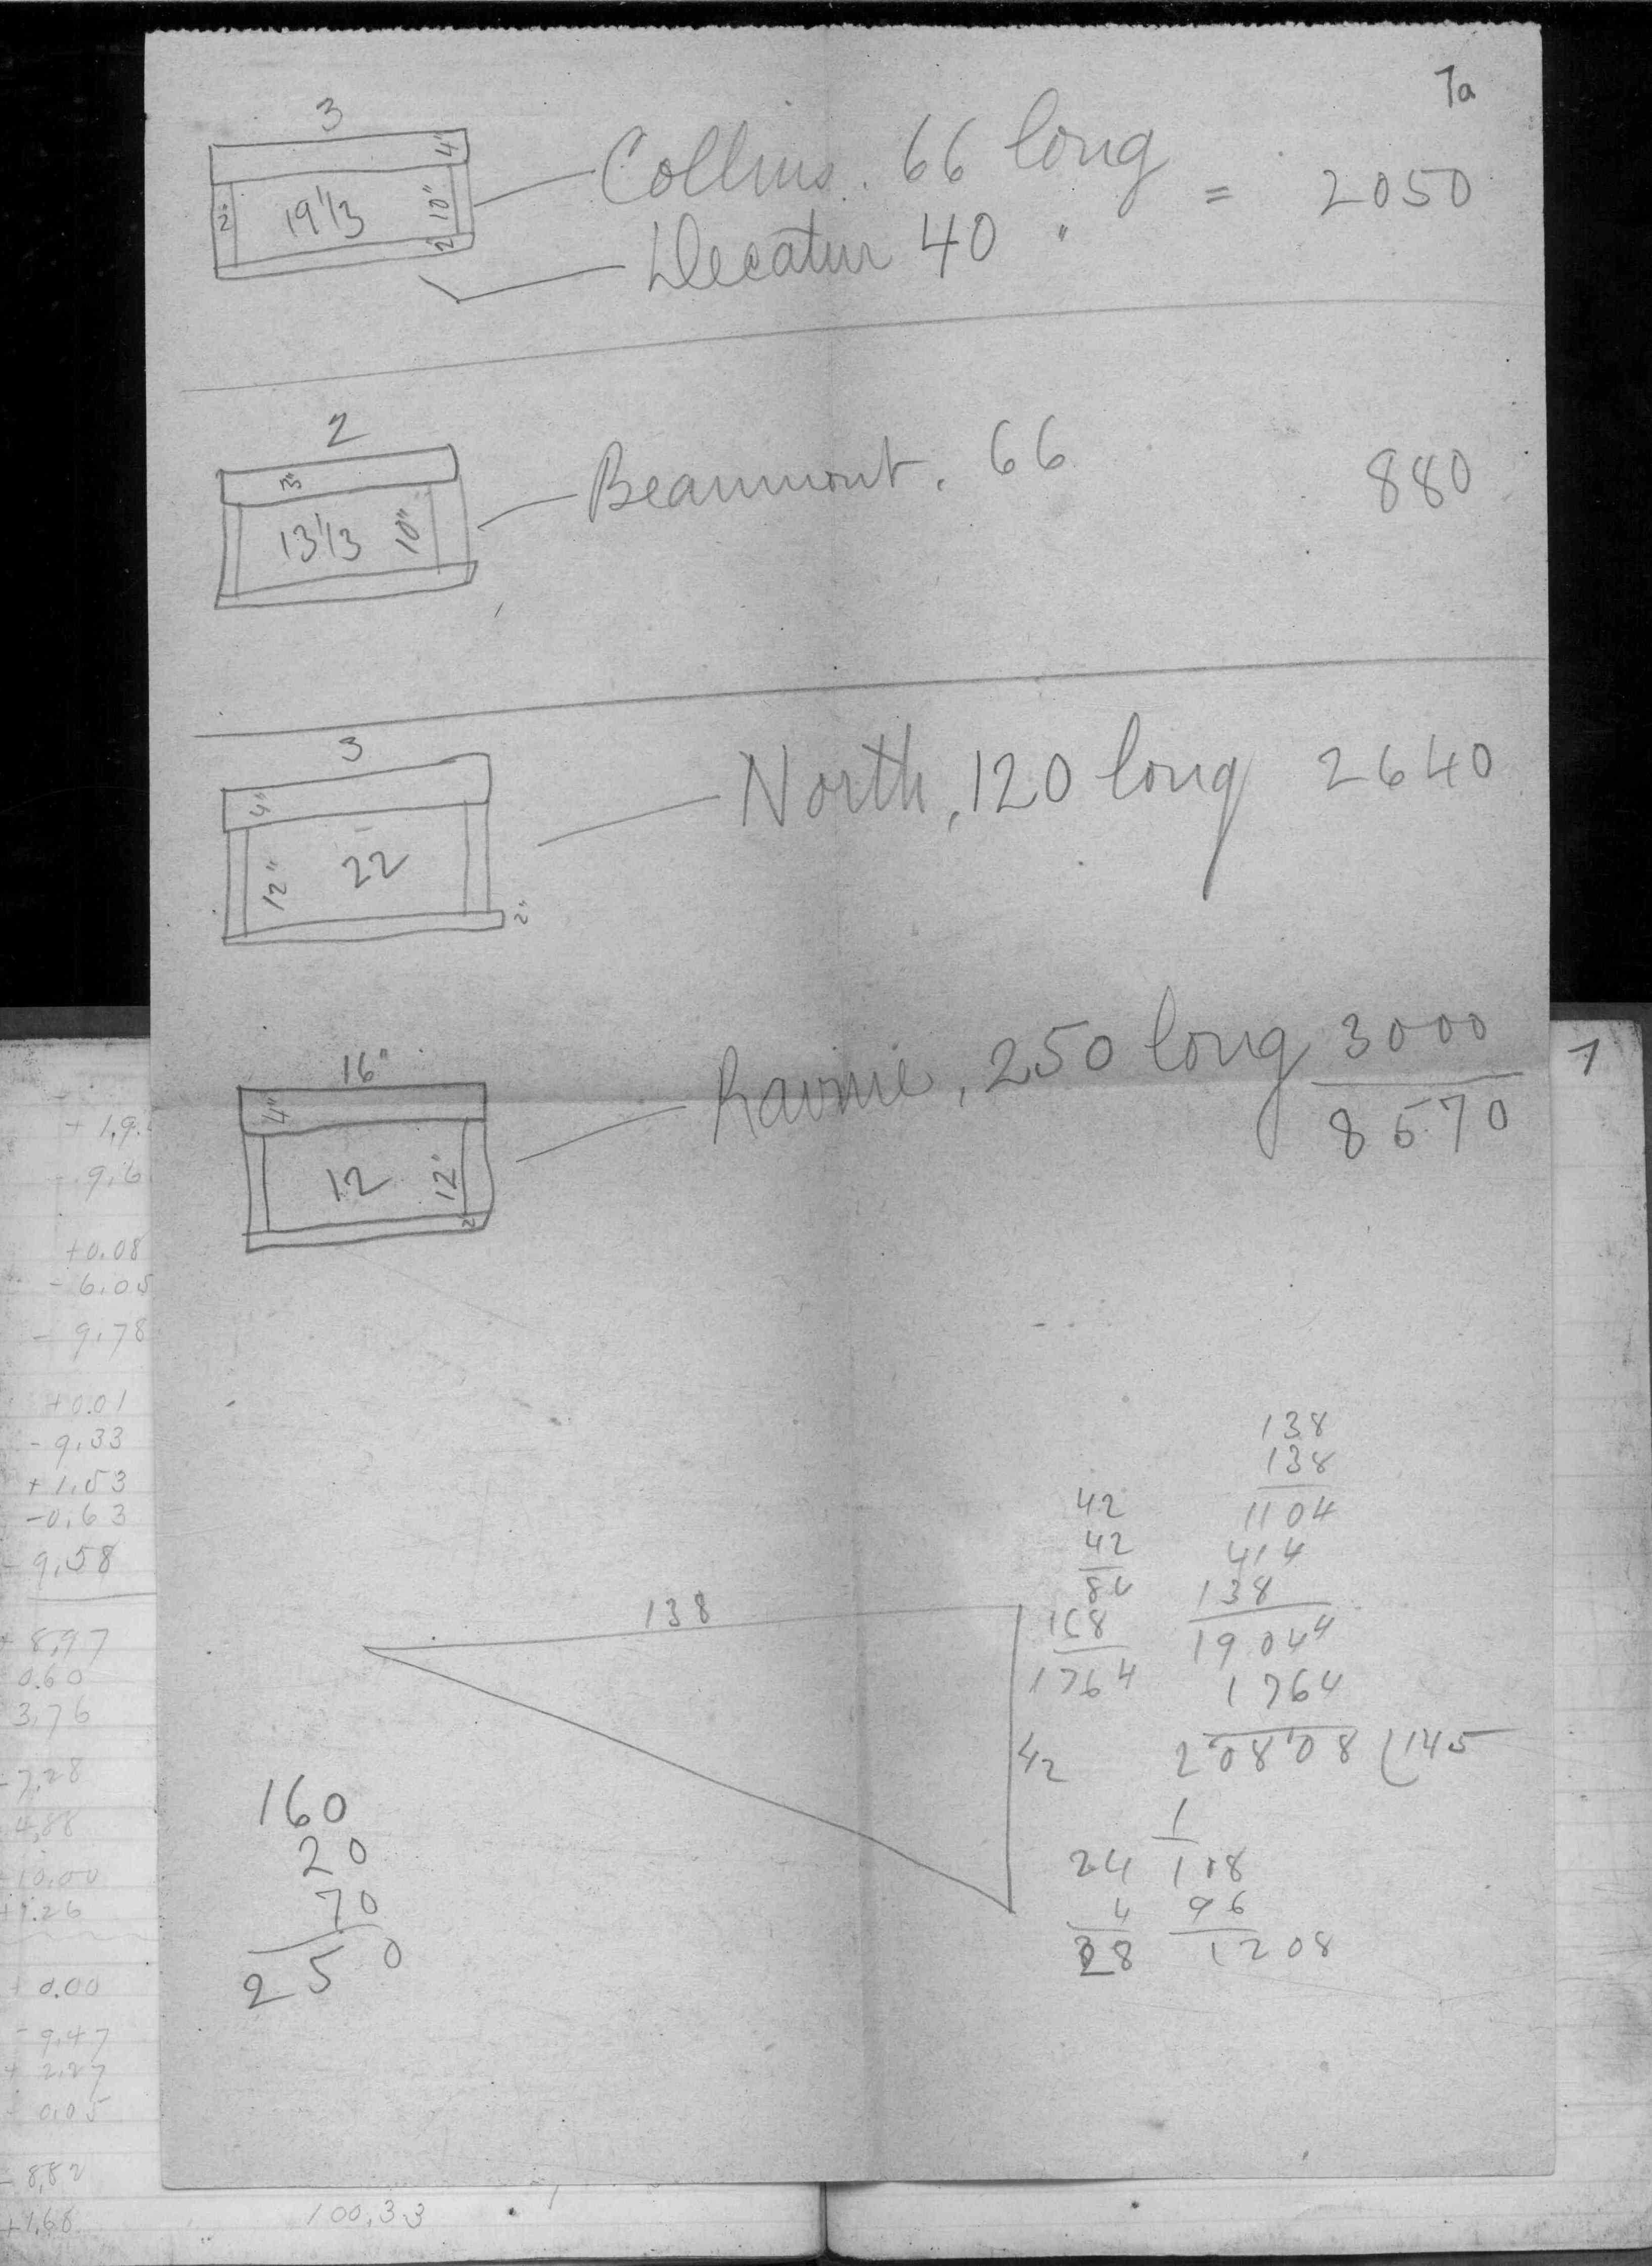 7a
3
4"
2"
19 1/3
10"
2
Collins. 66 long
Decatur 40 "
= 2050
2
3"
13 1/3
10"
Beaumont. 66
880
3
4"
12"
22
2"
North, 120 long 2640
16"
4"
12
12"
2
Ravine, 250 long 3000
8570
1
138
138
1104
414
138
19044
1764
20808 (145
1
24 108
4 96
28 1208
42
42
84
168
1764
138
42
160
20
70
250
- 9.6
+0.08
- 6.05
- 9.78
+0.01
- 9.33
+ 1.53
-0.63
- 9.58
8.97
0.60
3.76
- 7.28
4.88
10.00
+1.26
+ 0.00
- 9.47
+ 2.27
0.05
- 8.82
+1.68
100.33